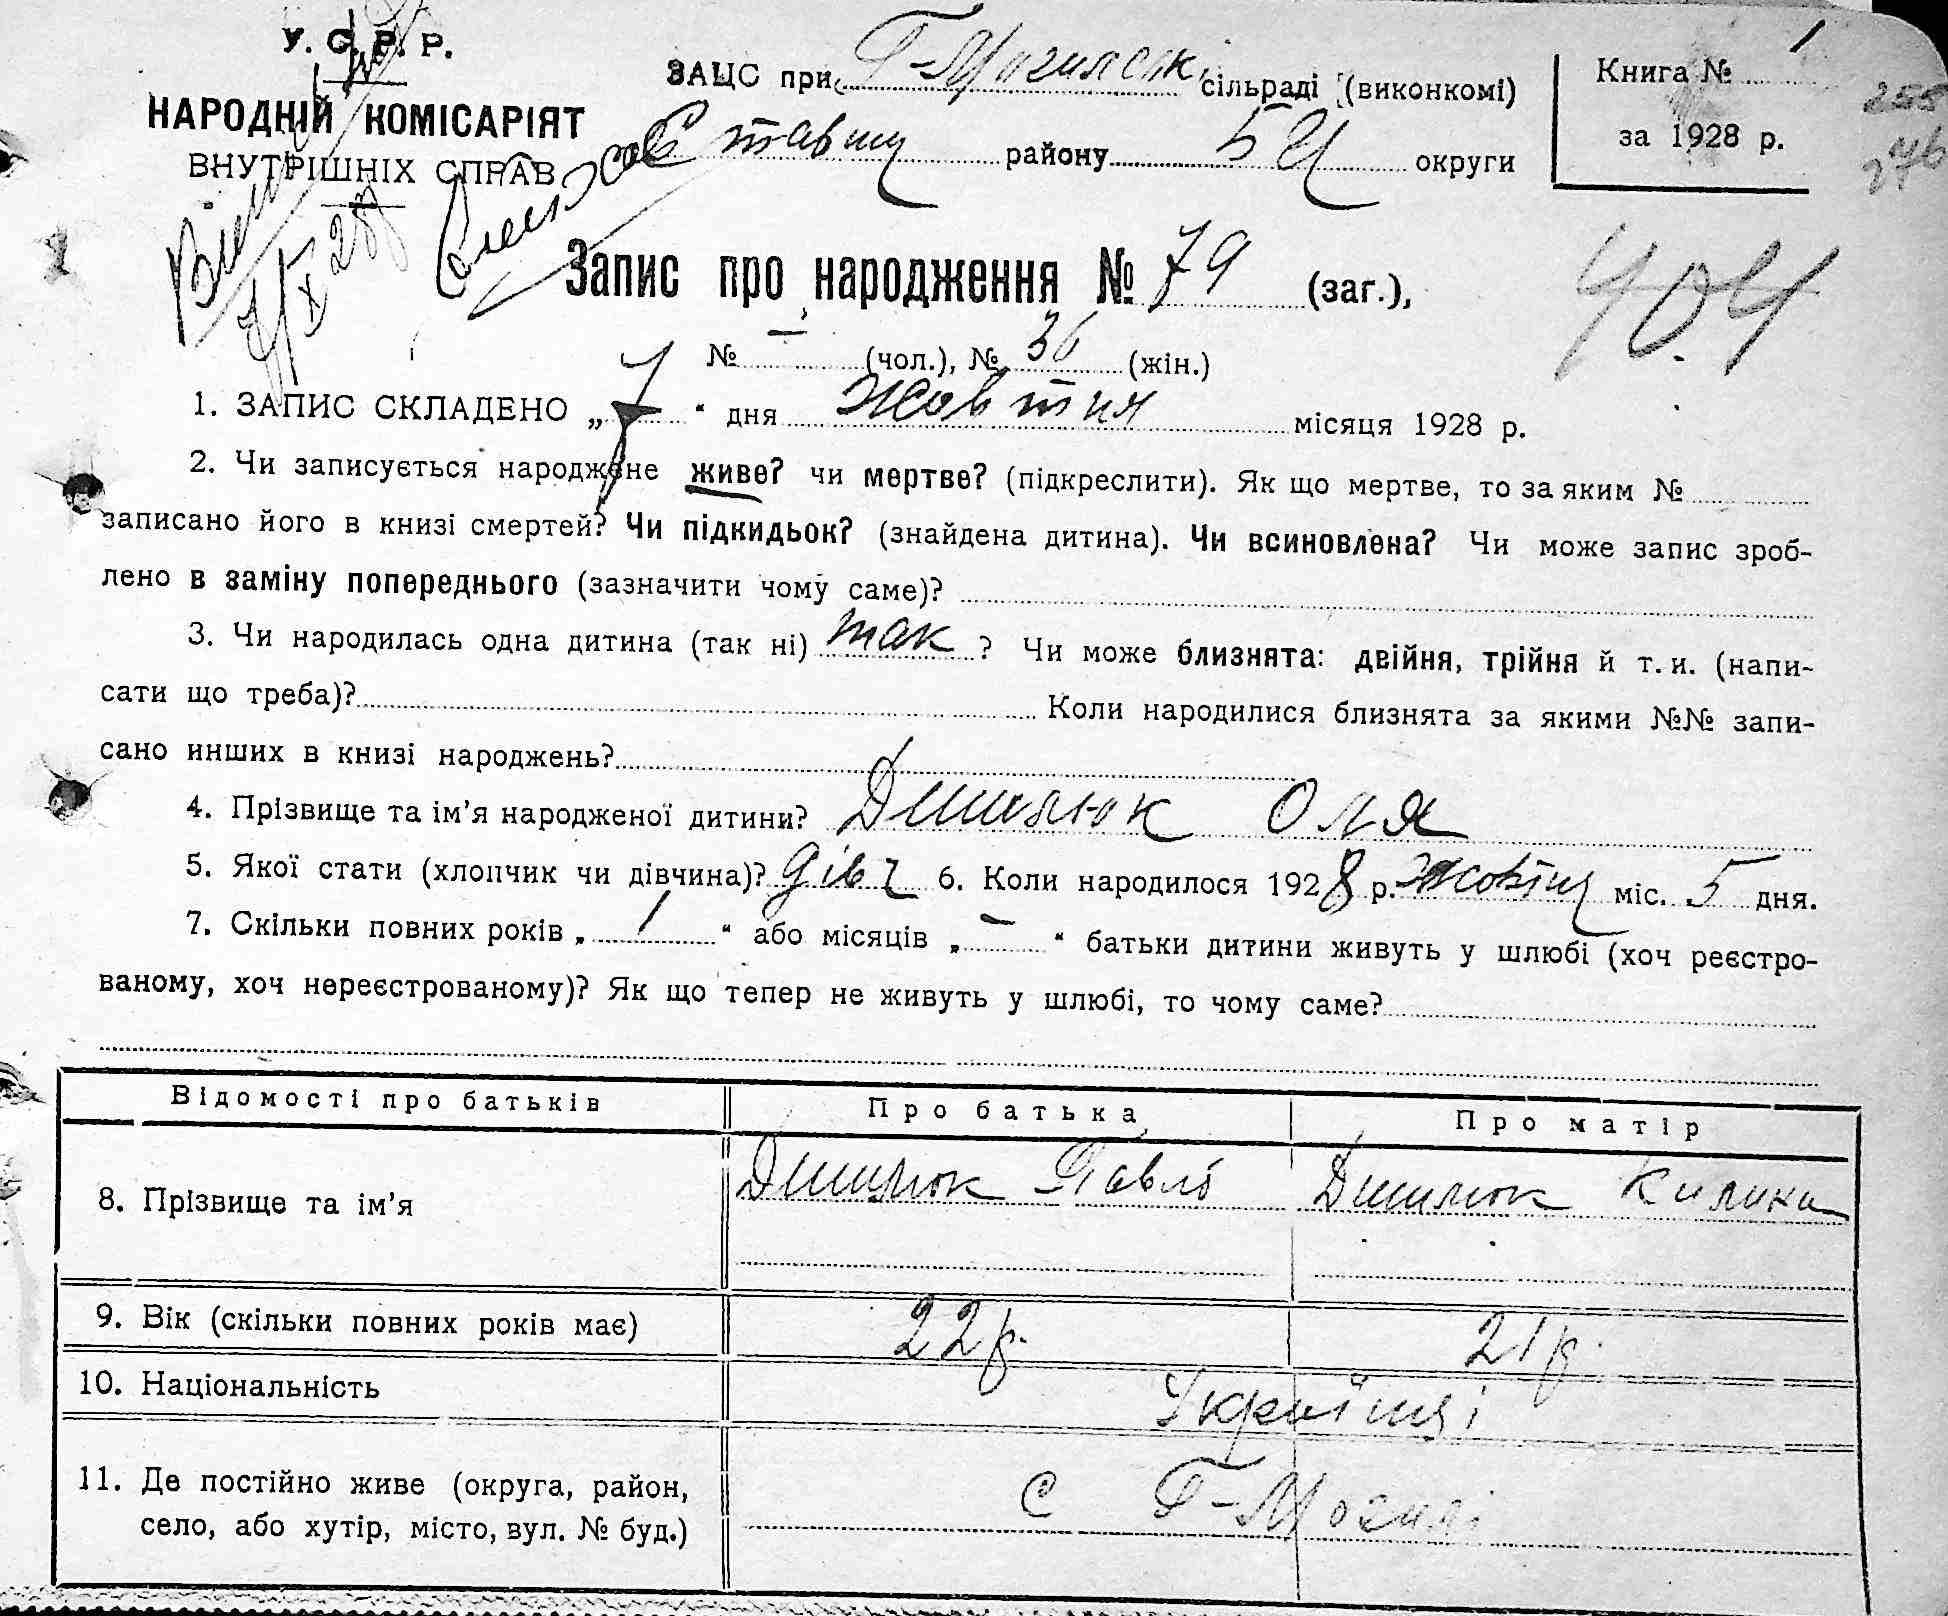 У. С. Р. Р.
НАРОДНІЙ КОМІСАРІЯТ
ВНУТРІШНІХ СПРАВ
ЗАЦС при Г-Могильскі сільраді (виконкомі)
Ставищ району БЦ округи
Книга № 1
за 1928 р.
255
276
404
Запис про народження № 79 (заг.),
№ — (чол.), № 36 (жін.)
1. ЗАПИС СКЛАДЕНО „7“ дня жовтня місяця 1928 р.
2. Чи записується народжене живе? чи мертве? (підкреслити). Як що мертве, то за яким №
записано його в книзі смертей? Чи підкидьок? (знайдена дитина). Чи всиновлена? Чи може запис зроб-
лено в заміну попереднього (зазначити чому саме)?
3. Чи народилась одна дитина (так ні) так ? Чи може близнята: двійня, трійня й т. и. (напи-
сати що треба)? Коли народилися близнята за якими №№ запи-
сано инших в книзі народжень?
4. Прізвище та ім’я народженої дитини? Оля
5. Якої стати (хлопчик чи дівчина)? дівч 6. Коли народилося 1928 р. жовтня міс. 5 дня.
7. Скільки повних років „ 1 “ або місяців „ — “ батьки дитини живуть у шлюбі (хоч реєстро-
ваному, хоч нереєстрованому)? Як що тепер не живуть у шлюбі, то чому саме?
Відомості про батьків Про батька Про матір
8. Прізвище та ім’я Павло Килина
9. Вік (скільки повних років має) 22 р. 21 р.
10. Національність Українці
11. Де постійно живе (округа, район,
село, або хутір, місто, вул. № буд.) с Г-Могилі